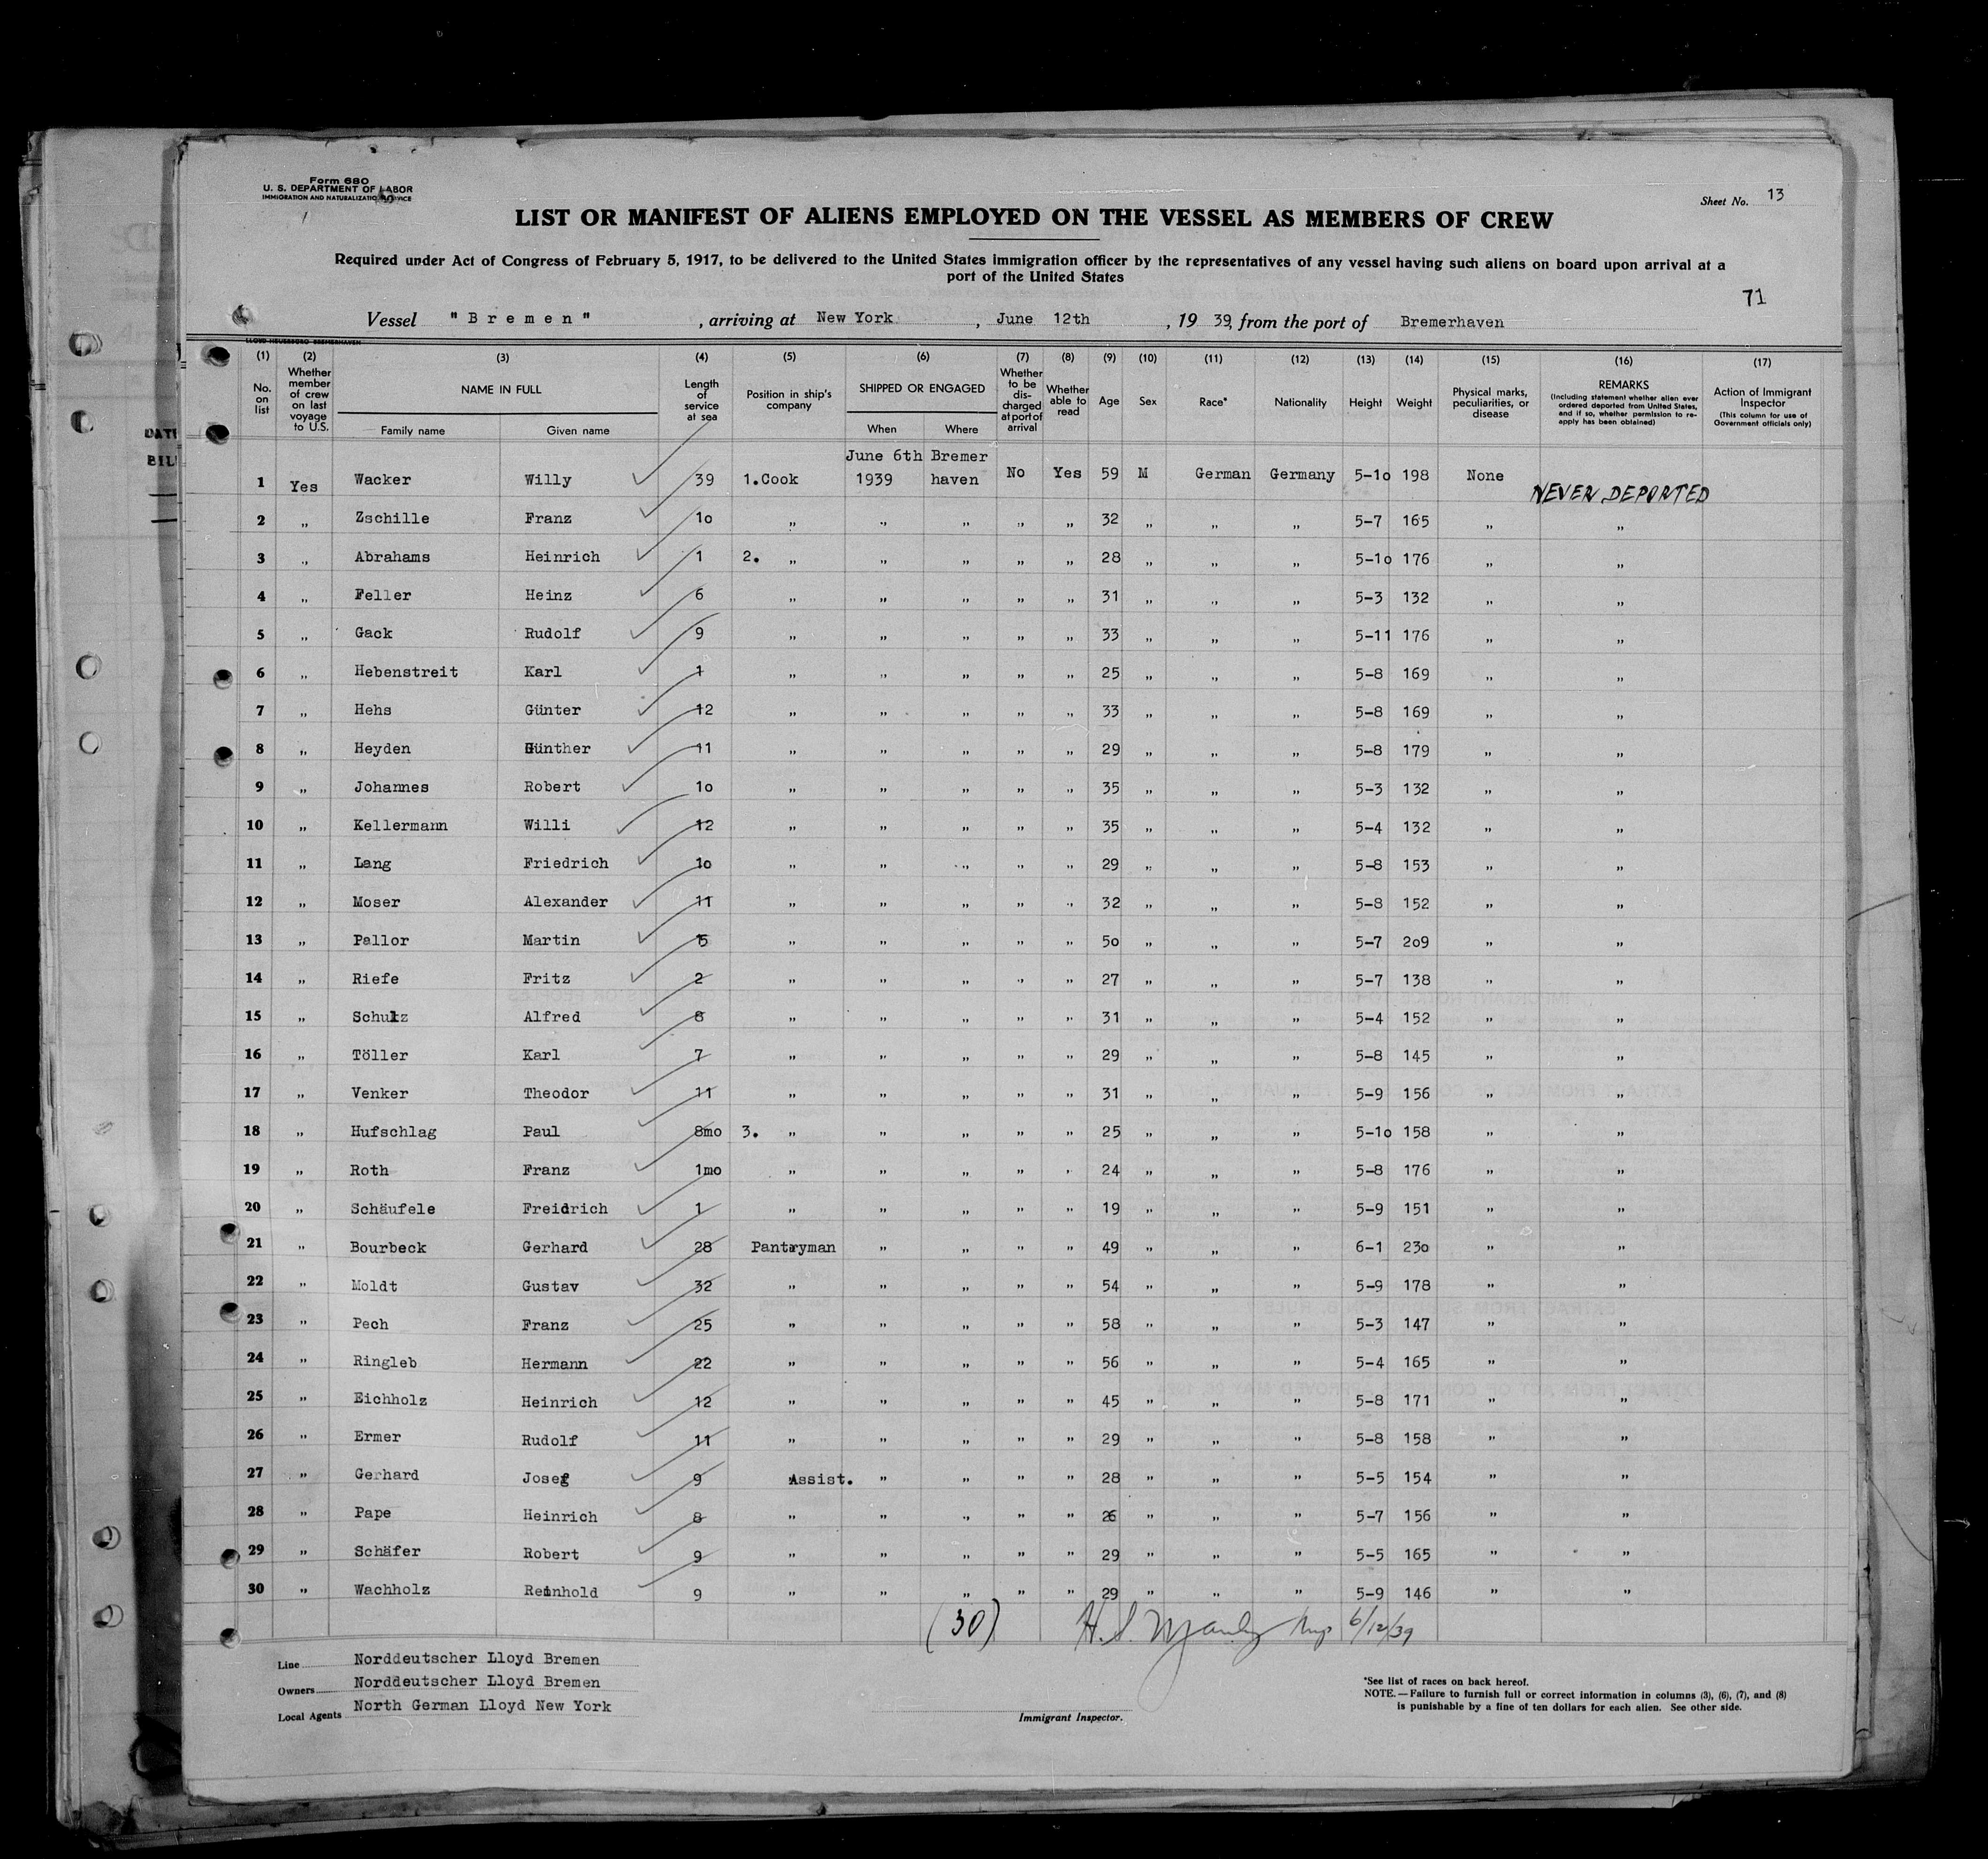 Form 680
U. S. DEPARTMENT OF LABOR
IMMIGRATION AND NATURALIZATION SERVICE
Sheet No. 13
LIST OR MANIFEST OF ALIENS EMPLOYED ON THE VESSEL AS MEMBERS OF CREW
Required under Act of Congress of February 5, 1917, to be delivered to the United States immigration officer by the representatives of any vessel having such aliens on board upon arrival at a
port of the United States
71
Vessel "Bremen", arriving at New York, June 12th, 1939, from the port of Bremerhaven
(1) (2) (3) (4) (5) (6) (7) (8) (9) (10) (11) (12) (13) (14) (15) (16) (17)
No. on list
Whether member of crew on last voyage to U.S.
NAME IN FULL
Family name Given name
Length of service at sea
Position in ship's company
SHIPPED OR ENGAGED
When Where
Whether to be discharged at port of arrival
Whether able to read
Age
Sex
Race*
Nationality
Height
Weight
Physical marks, peculiarities, or disease
REMARKS
(Including statement whether alien ever ordered deported from United States, and if so, whether permission to re-apply has been obtained)
Action of Immigrant Inspector
(This column for use of Government officials only)
1 Yes Wacker Willy 39 1.Cook June 6th 1939 Bremer haven No Yes 59 M German Germany 5-10 198 None NEVER DEPORTED
2 " Zschille Franz 10 " " " " " 32 " " " 5-7 165 " "
3 " Abrahams Heinrich 1 2. " " " " " 28 " " " 5-10 176 " "
4 " Feller Heinz 6 " " " " " 31 " " " 5-3 132 " "
5 " Gack Rudolf 9 " " " " " 33 " " " 5-11 176 " "
6 " Hebenstreit Karl 1 " " " " " 25 " " " 5-8 169 " "
7 " Hehs Günter 12 " " " " " 33 " " " 5-8 169 " "
8 " Heyden Günther 11 " " " " " 29 " " " 5-8 179 " "
9 " Johannes Robert 10 " " " " " 35 " " " 5-3 132 " "
10 " Kellermann Willi 12 " " " " " 35 " " " 5-4 132 " "
11 " Lang Friedrich 10 " " " " " 29 " " " 5-8 153 " "
12 " Moser Alexander 11 " " " " " 32 " " " 5-8 152 " "
13 " Pallor Martin 5 " " " " " 50 " " " 5-7 209 " "
14 " Riefe Fritz 2 " " " " " 27 " " " 5-7 138 " "
15 " Schulz Alfred 8 " " " " " 31 " " " 5-4 152 " "
16 " Töller Karl 7 " " " " " 29 " " " 5-8 145 " "
17 " Venker Theodor 11 " " " " " 31 " " " 5-9 156 " "
18 " Hufschlag Paul 8mo 3. " " " " " 25 " " " 5-10 158 " "
19 " Roth Franz 1mo " " " " " 24 " " " 5-8 176 " "
20 " Schäufele Freidrich 1 " " " " " 19 " " " 5-9 151 " "
21 " Bourbeck Gerhard 28 Pantryman " " " " 49 " " " 6-1 230 " "
22 " Moldt Gustav 32 " " " " " 54 " " " 5-9 178 " "
23 " Pech Franz 25 " " " " " 58 " " " 5-3 147 " "
24 " Ringleb Hermann 22 " " " " " 56 " " " 5-4 165 " "
25 " Eichholz Heinrich 12 " " " " " 45 " " " 5-8 171 " "
26 " Ermer Rudolf 11 " " " " " 29 " " " 5-8 158 " "
27 " Gerhard Josef 9 Assist. " " " " 28 " " " 5-5 154 " "
28 " Pape Heinrich 8 " " " " " 26 " " " 5-7 156 " "
29 " Schäfer Robert 9 " " " " " 29 " " " 5-5 165 " "
30 " Wachholz Reinhold 9 " " " " " 29 " " " 5-9 146 " "
(30) 6/12/39
Line Norddeutscher Lloyd Bremen
Owners Norddeutscher Lloyd Bremen
Local Agents North German Lloyd New York
Immigrant Inspector.
*See list of races on back hereof.
NOTE.—Failure to furnish full or correct information in columns (3), (6), (7), and (8)
is punishable by a fine of ten dollars for each alien. See other side.